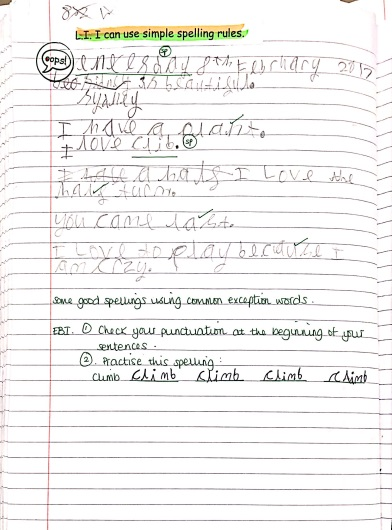 L.I. I can use simple spelling rules.
oops! enesday 8th February 2017
is beautiful.
I have a plant.
I love clib. sp
I love the
half turn.
you came last.
I Love to play because I
am crzy.
some good spellings using common exception words.
EBI. ① Check your punctuation at the beginning of your
sentences.
②. Practise this spelling:
climb climb climb climb climb